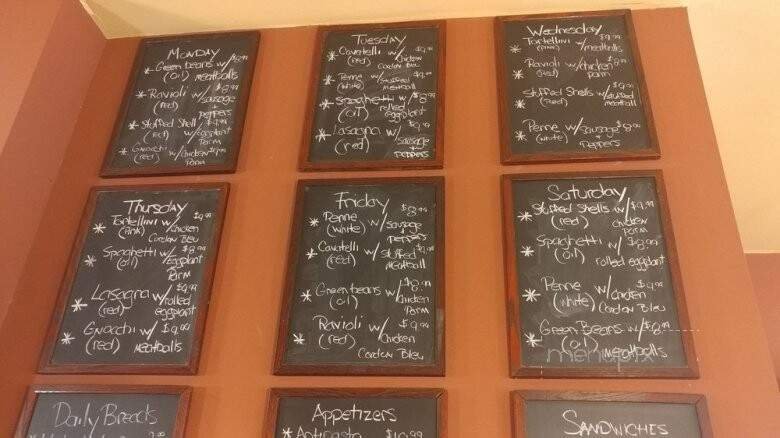 Monday
* Green beans w/ $8.99
(oil) meatballs
* Ravioli w/
(red) sausage
+
peppers
* Stuffed Shell
(red) w/ eggplant
parm
* Gnocchi w/ chicken
(red) parm
Tuesday
* Cavatelli w/ chicken
(red) Cordon Bleu
* Penne w/ stuffed
(white) meatball
* Spaghetti w/ $8.99
(oil) rolled
eggplant
* Lasagna w/
(red) sausage
+
peppers
Wednesday
* Tortellini w/ $9.99
(pink) meatballs
* Ravioli w/ chicken
(red) parm
* Stuffed Shells w/ stuffed
(red) meatball
* Penne w/ sausage
(white) +
peppers
Thursday
* Tortellini w/ chicken $9.99
(pink) Cordon Bleu
* Spaghetti w/
(oil) Eggplant
parm
* Lasagna w/ rolled
(red) eggplant
* Gnocchi w/ $9.99
(red) meatballs
Friday
* Penne $8.99
(white) w/ sausage
+
peppers
* Cavatelli w/ stuffed
(red) meatball
* Green beans w/ $8.99
(oil) Chicken
Parm
* Ravioli w/ $9.99
(red) Chicken
Cordon Bleu
Saturday
* Stuffed Shells w/ $9.99
(red) chicken
parm
* Spaghetti w/ $8.99
(oil) rolled eggplant
* Penne w/ chicken
(white) Cordon Bleu
* Green Beans w/ $8.99
(oil) meatballs
menupix
Daily Breads
Appetizers
* Antipasto $10.99
Sandwiches